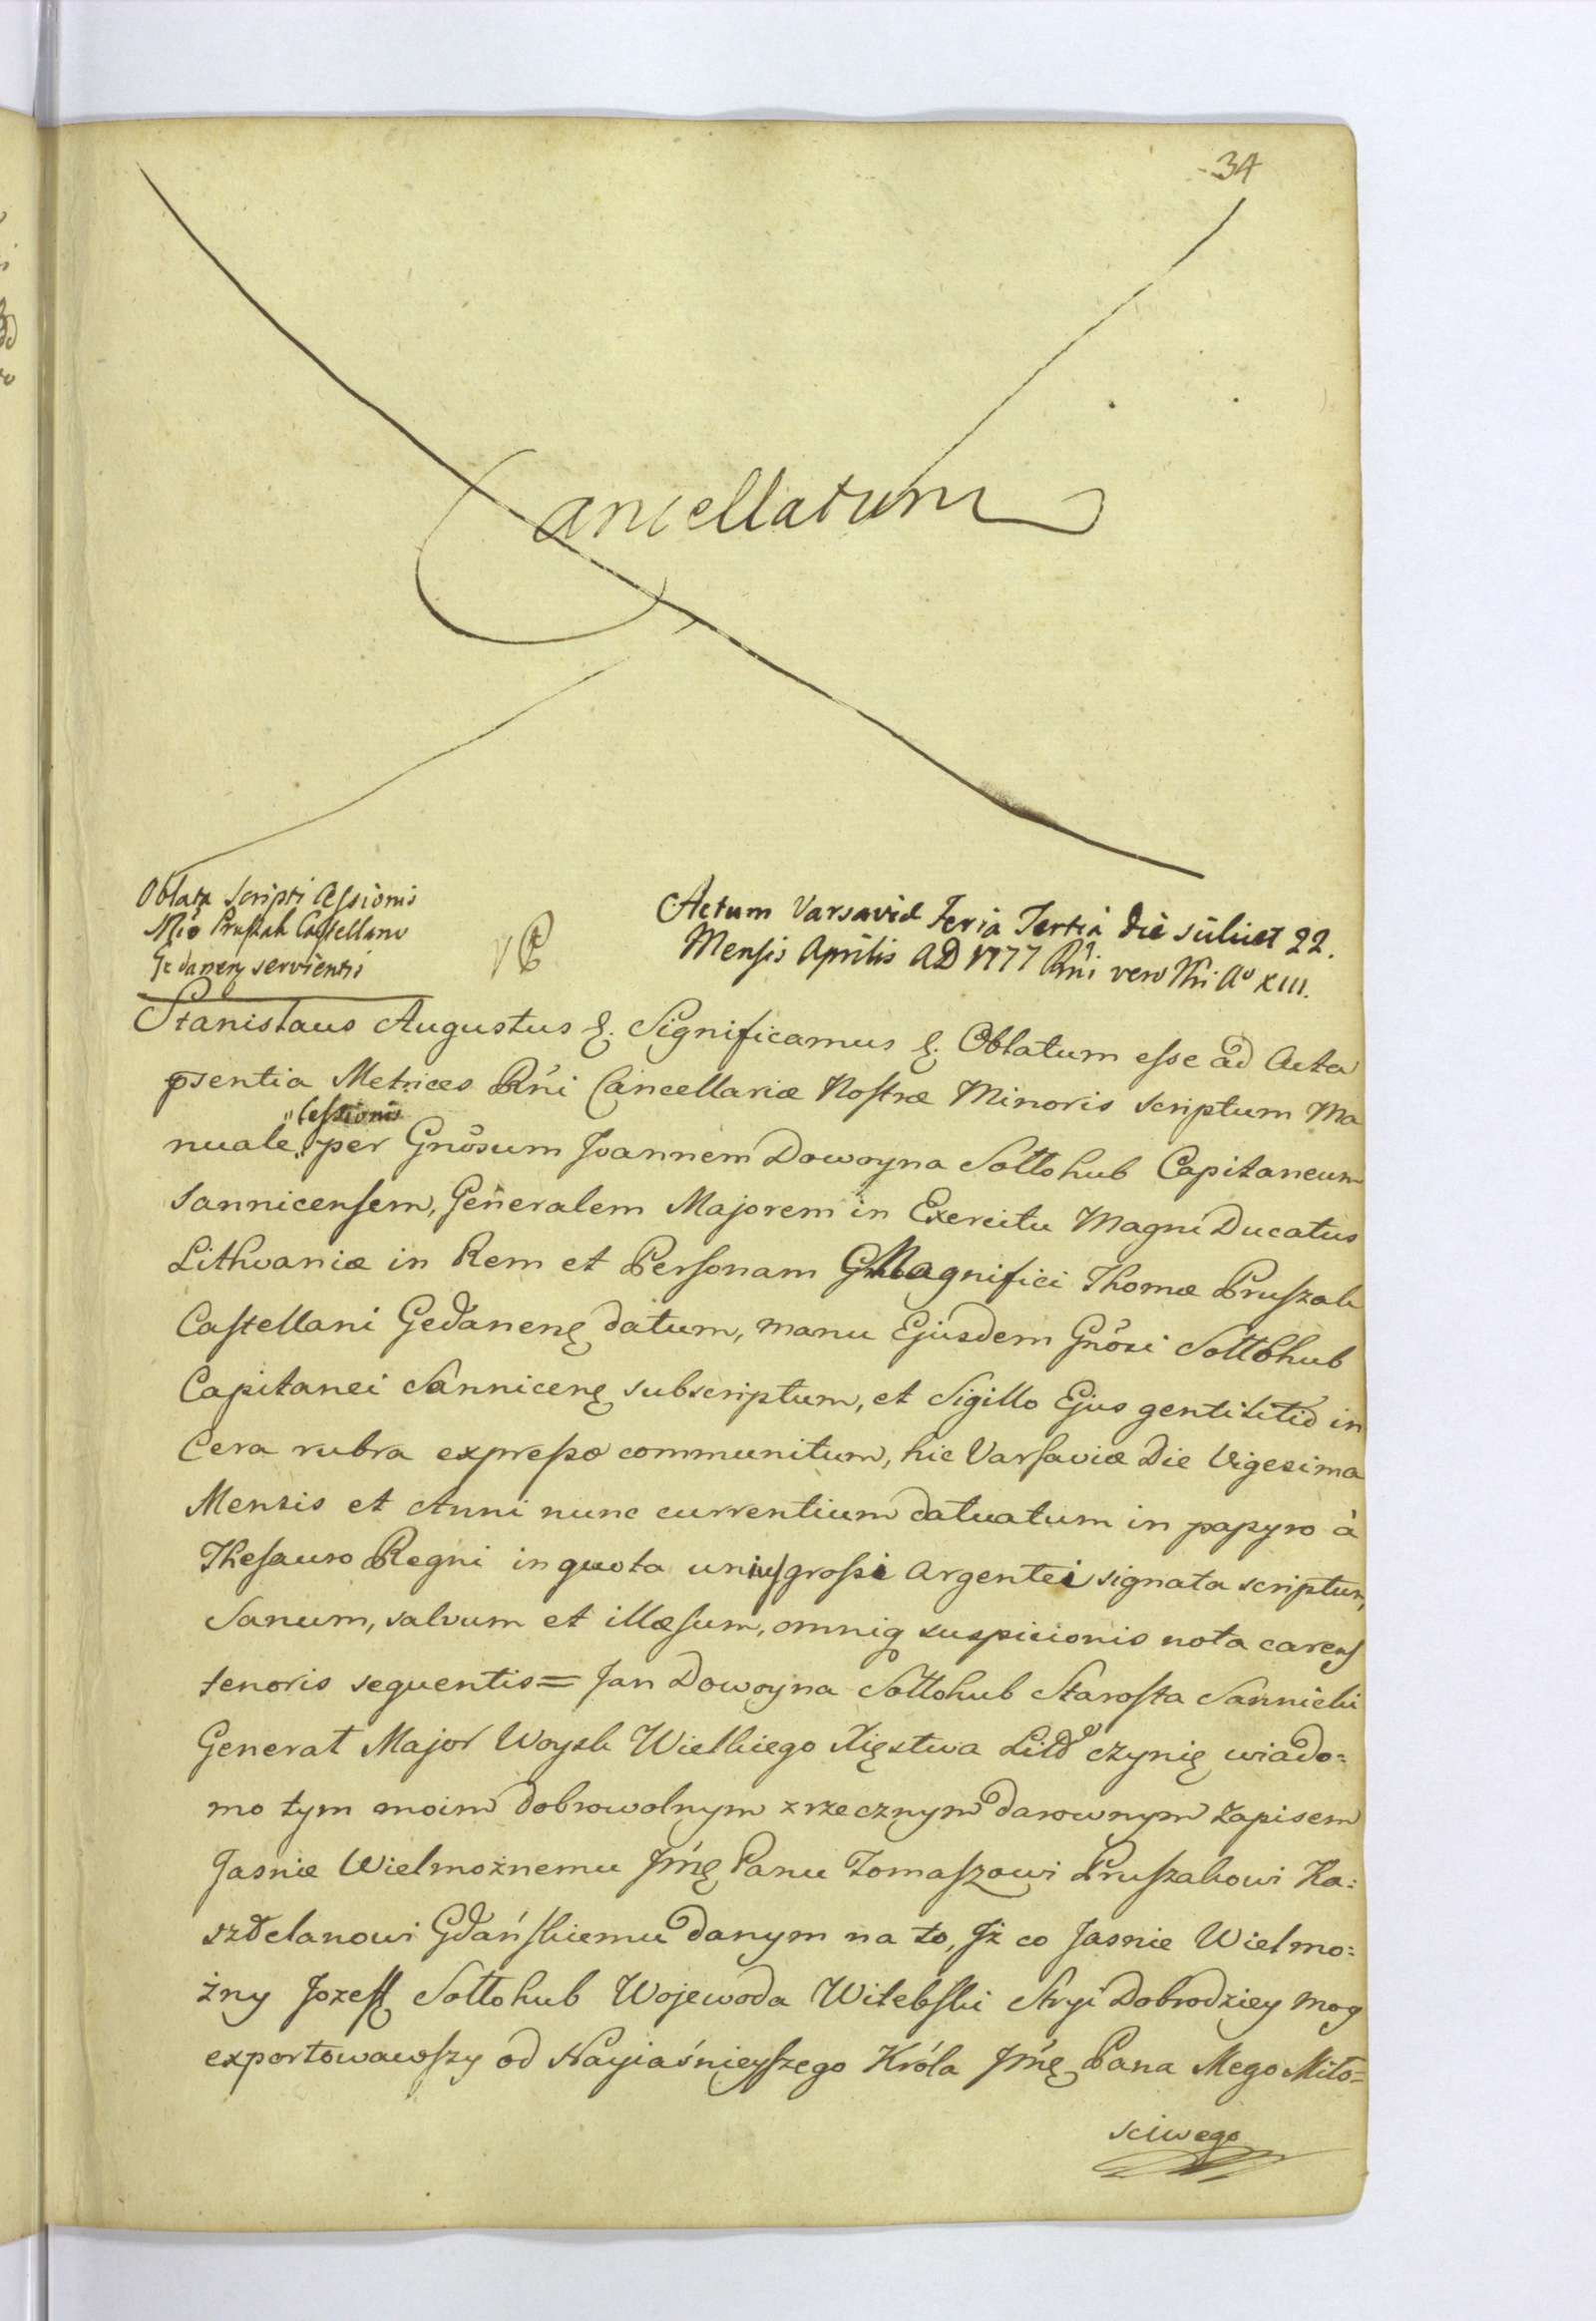 34
Cancellatum
Oblata Scripti Cessionis
Mco Pruszak Castellano
Gedanen servientis
Actum Varsaviæ Feria Tertia Die scilicet 22.
Mensis Aprilis AD 1777 Rni vero Nri Ao XIII.
Stanislaus Augustus &. Significamus &. Oblatum esse ad Acta
pṡentia Metrices Rńi Cancellariæ Nostræ Minoris scriptum Ma
Cessionis
nuale per Gnõsum Joannem Dowoyna Sołłohub Capitaneum
Sannicensem, Generalem Majorem in Exercitu Magni Ducatus
Lithvaniæ in Rem et Personam Magnifici Thomæ Pruszak
Castellani Gedanenę datum, manu Ejusdem Gnõsi Sołłohub
Capitanei Sannicenę subscriptum, et Sigillo Ejus gentilitio in
Cera rubra expresso communitum, hic Varsaviæ Die Vigesima
Mensis et Anni nunc currentium datuatum in papyro à
Thesauro Regni in quota unius grossi Argentei signata scriptum,
Sanum, salvum et illæsum, omniq suspicionis nota carens
tenoris sequentis = Jan Dowoyna Sołłohub Starosta Sannicki
Generał Major Woysk Wielkiego Xięstwa Litgo czynię wiado=
mo tym moim dobrowolnym zrzecznym darownym Zapisem
Jasnie Wielmożnemu Jmę Panu Tomaszowi Pruszakowi Ka=
sztelanowi Gdańskiemu danym na to, Jż co Jasnie Wielmo=
żny Jozeff Sołłohub Wojewoda Witebski Stryi Dobrodziey moy
exportowawszy od Nayiaśnieyszego Króla Jmę Pana Mego Miło=
sciwego